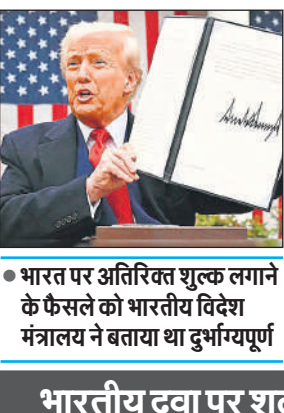 भारत पर अतिरिक्त शुल्क लगाने
के फैसले को भारतीय विदेश
मंत्रालय ने बताया था दुर्भाग्यपूर्ण
भारतीय दवा पर